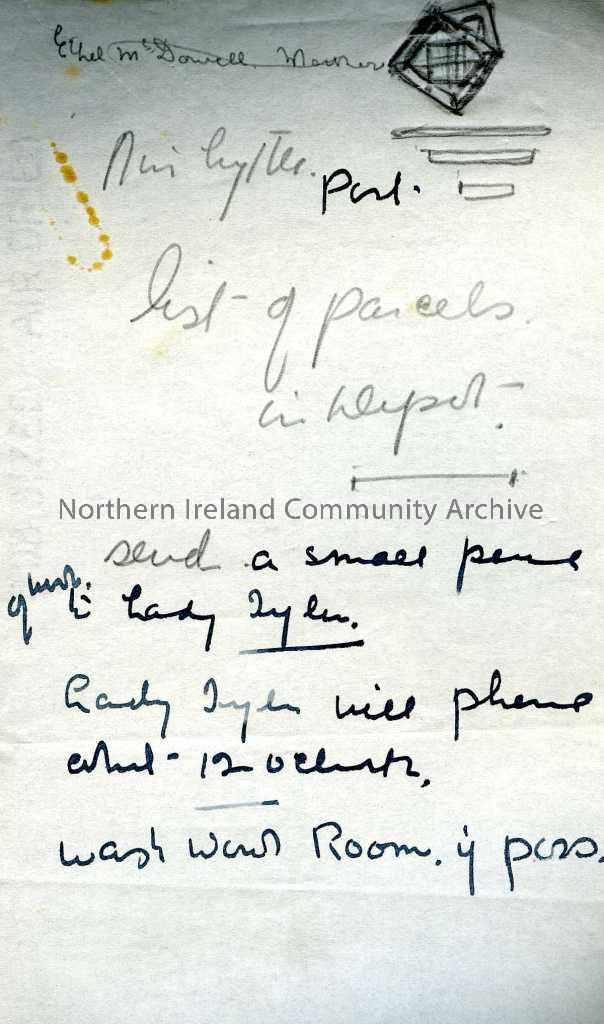 Ethel McDowell
Miss Lyttle.
Post.
list of parcels.
in Depot.
Northern Ireland Community Archive
send a small
of work. to Lady Tyler.
Lady Tyler will phone
about 12 oclock.
wash Work Room. if poss.